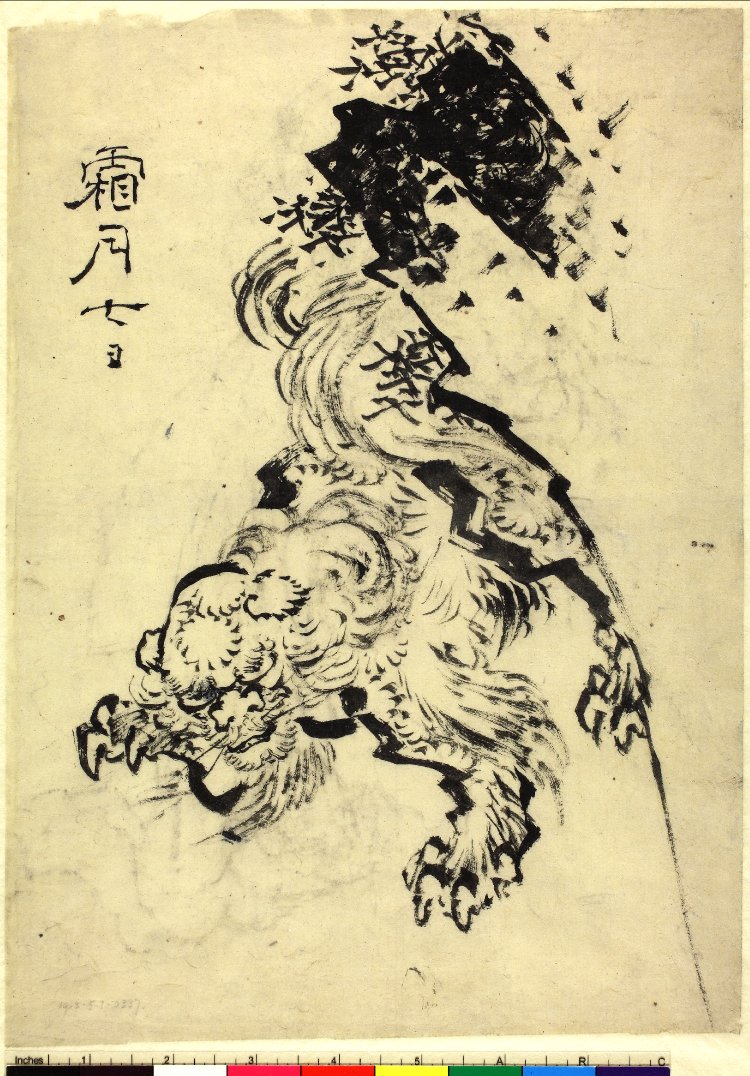 霜月七日
Inches 1 2 3 4 5 A R C